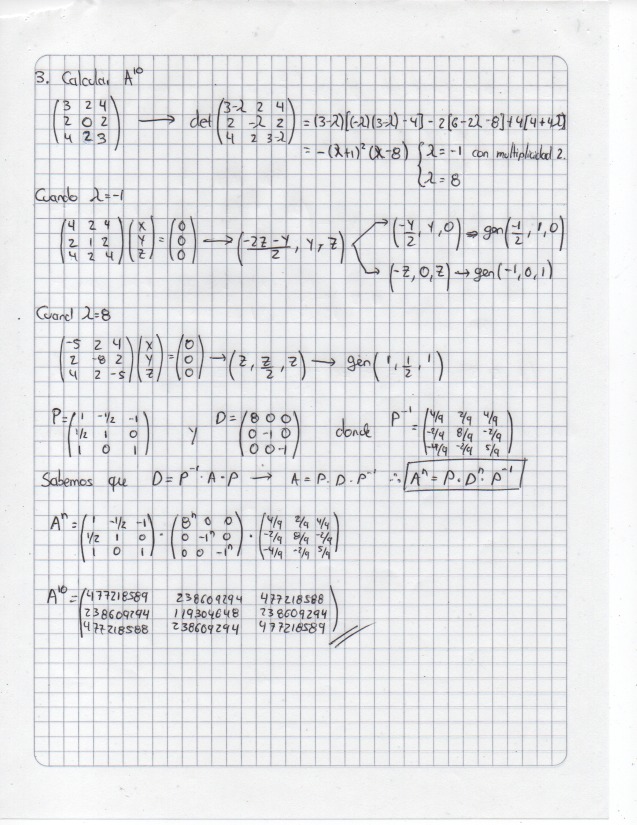 3. Calcular A¹⁰
(3 2 4; 2 0 2; 4 2 3) → det (3-λ 2 4; 2 -λ 2; 4 2 3-λ) = (3-λ)[(-λ)(3-λ) - 4] - 2[6-2λ-8] + 4[4+4λ]
= -(λ+1)²(λ-8) { λ=-1 con multiplicidad 2.
λ=8
Cuando λ=-1
(4 2 4; 2 1 2; 4 2 4)(x; y; z) = (0; 0; 0) → (-2z-y/2, y, z) → (-y/2, y, 0) ⇒ gen(-1/2, 1, 0)
→ (-z, 0, z) → gen(-1, 0, 1)
Cuand λ=8
(-5 2 4; 2 -8 2; 4 2 -5)(x; y; z) = (0; 0; 0) → (z, z/2, z) → gen(1, 1/2, 1)
P = (1 -1/2 -1; 1/2 1 0; 1 0 1) y D = (8 0 0; 0 -1 0; 0 0 -1) donde P⁻¹ = (4/9 2/9 4/9; -2/9 8/9 -2/9; -4/9 -2/9 5/9)
Sabemos que D = P⁻¹·A·P → A = P·D·P⁻¹ ∴ Aⁿ = P·Dⁿ·P⁻¹
Aⁿ = (1 -1/2 -1; 1/2 1 0; 1 0 1) · (8ⁿ 0 0; 0 -1ⁿ 0; 0 0 -1ⁿ) · (4/9 2/9 4/9; -2/9 8/9 -2/9; -4/9 -2/9 5/9)
A¹⁰ = (477218589 238609294 477218588
238609294 119304648 238609294
477218588 238609294 477218589)